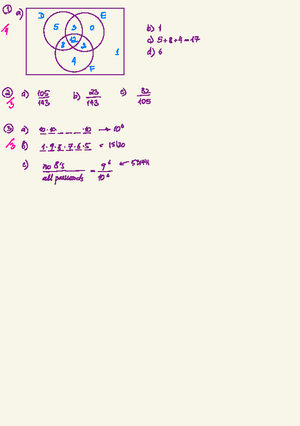 ① a) D E
5 3 0
12
8 2
4 1
F
b) 1
c) 5+8+4=17
d) 6
② a) 105/143 b) 23/143 c) 82/105
③ a) 10.10. _ _ _ .10 → 10⁶
b) 1.9.8.7.6.5 = 15120
c) no 8's / all passwords = 9⁶/10⁶ ← 531441